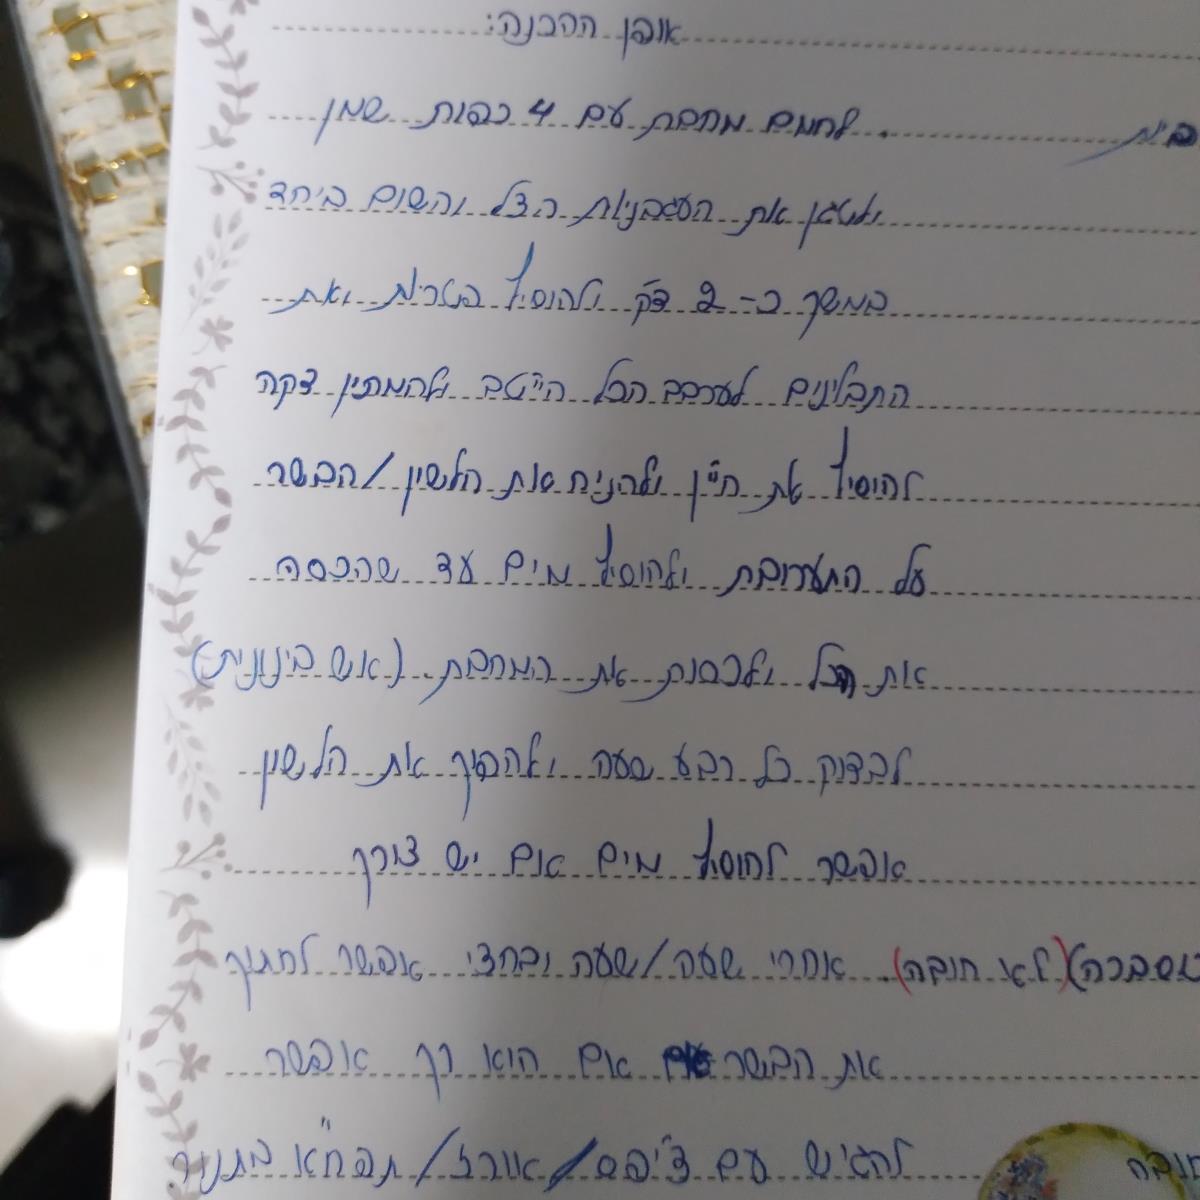 אופן ההכנה:
לחמם מחבת עם 4 כפות שמן
ולטגן את העגבניות הצל והשום ביחד
במשך כ- 2 דק' ולהוסיף פטריות ואת
התבלינים לערבב הכל היטב ולהמתין דקה
להוסיף את היין ולהניח את הלשון/הבשר
על התערובת ולהוסיף מים עד שהכסה
את הכל ולכסות את המחבת. (אש בינונית)
לבדוק כל רבע שעה ולהפוך את הלשון
אפשר להוסיף מים אם יש צורך
(לא חובה) אחרי שעה/שעה ובחצי אפשר לחתוך
את הבשר אם הוא רך אפשר
להגיש עם צ'יפס/אורז/תפו"א בתנור